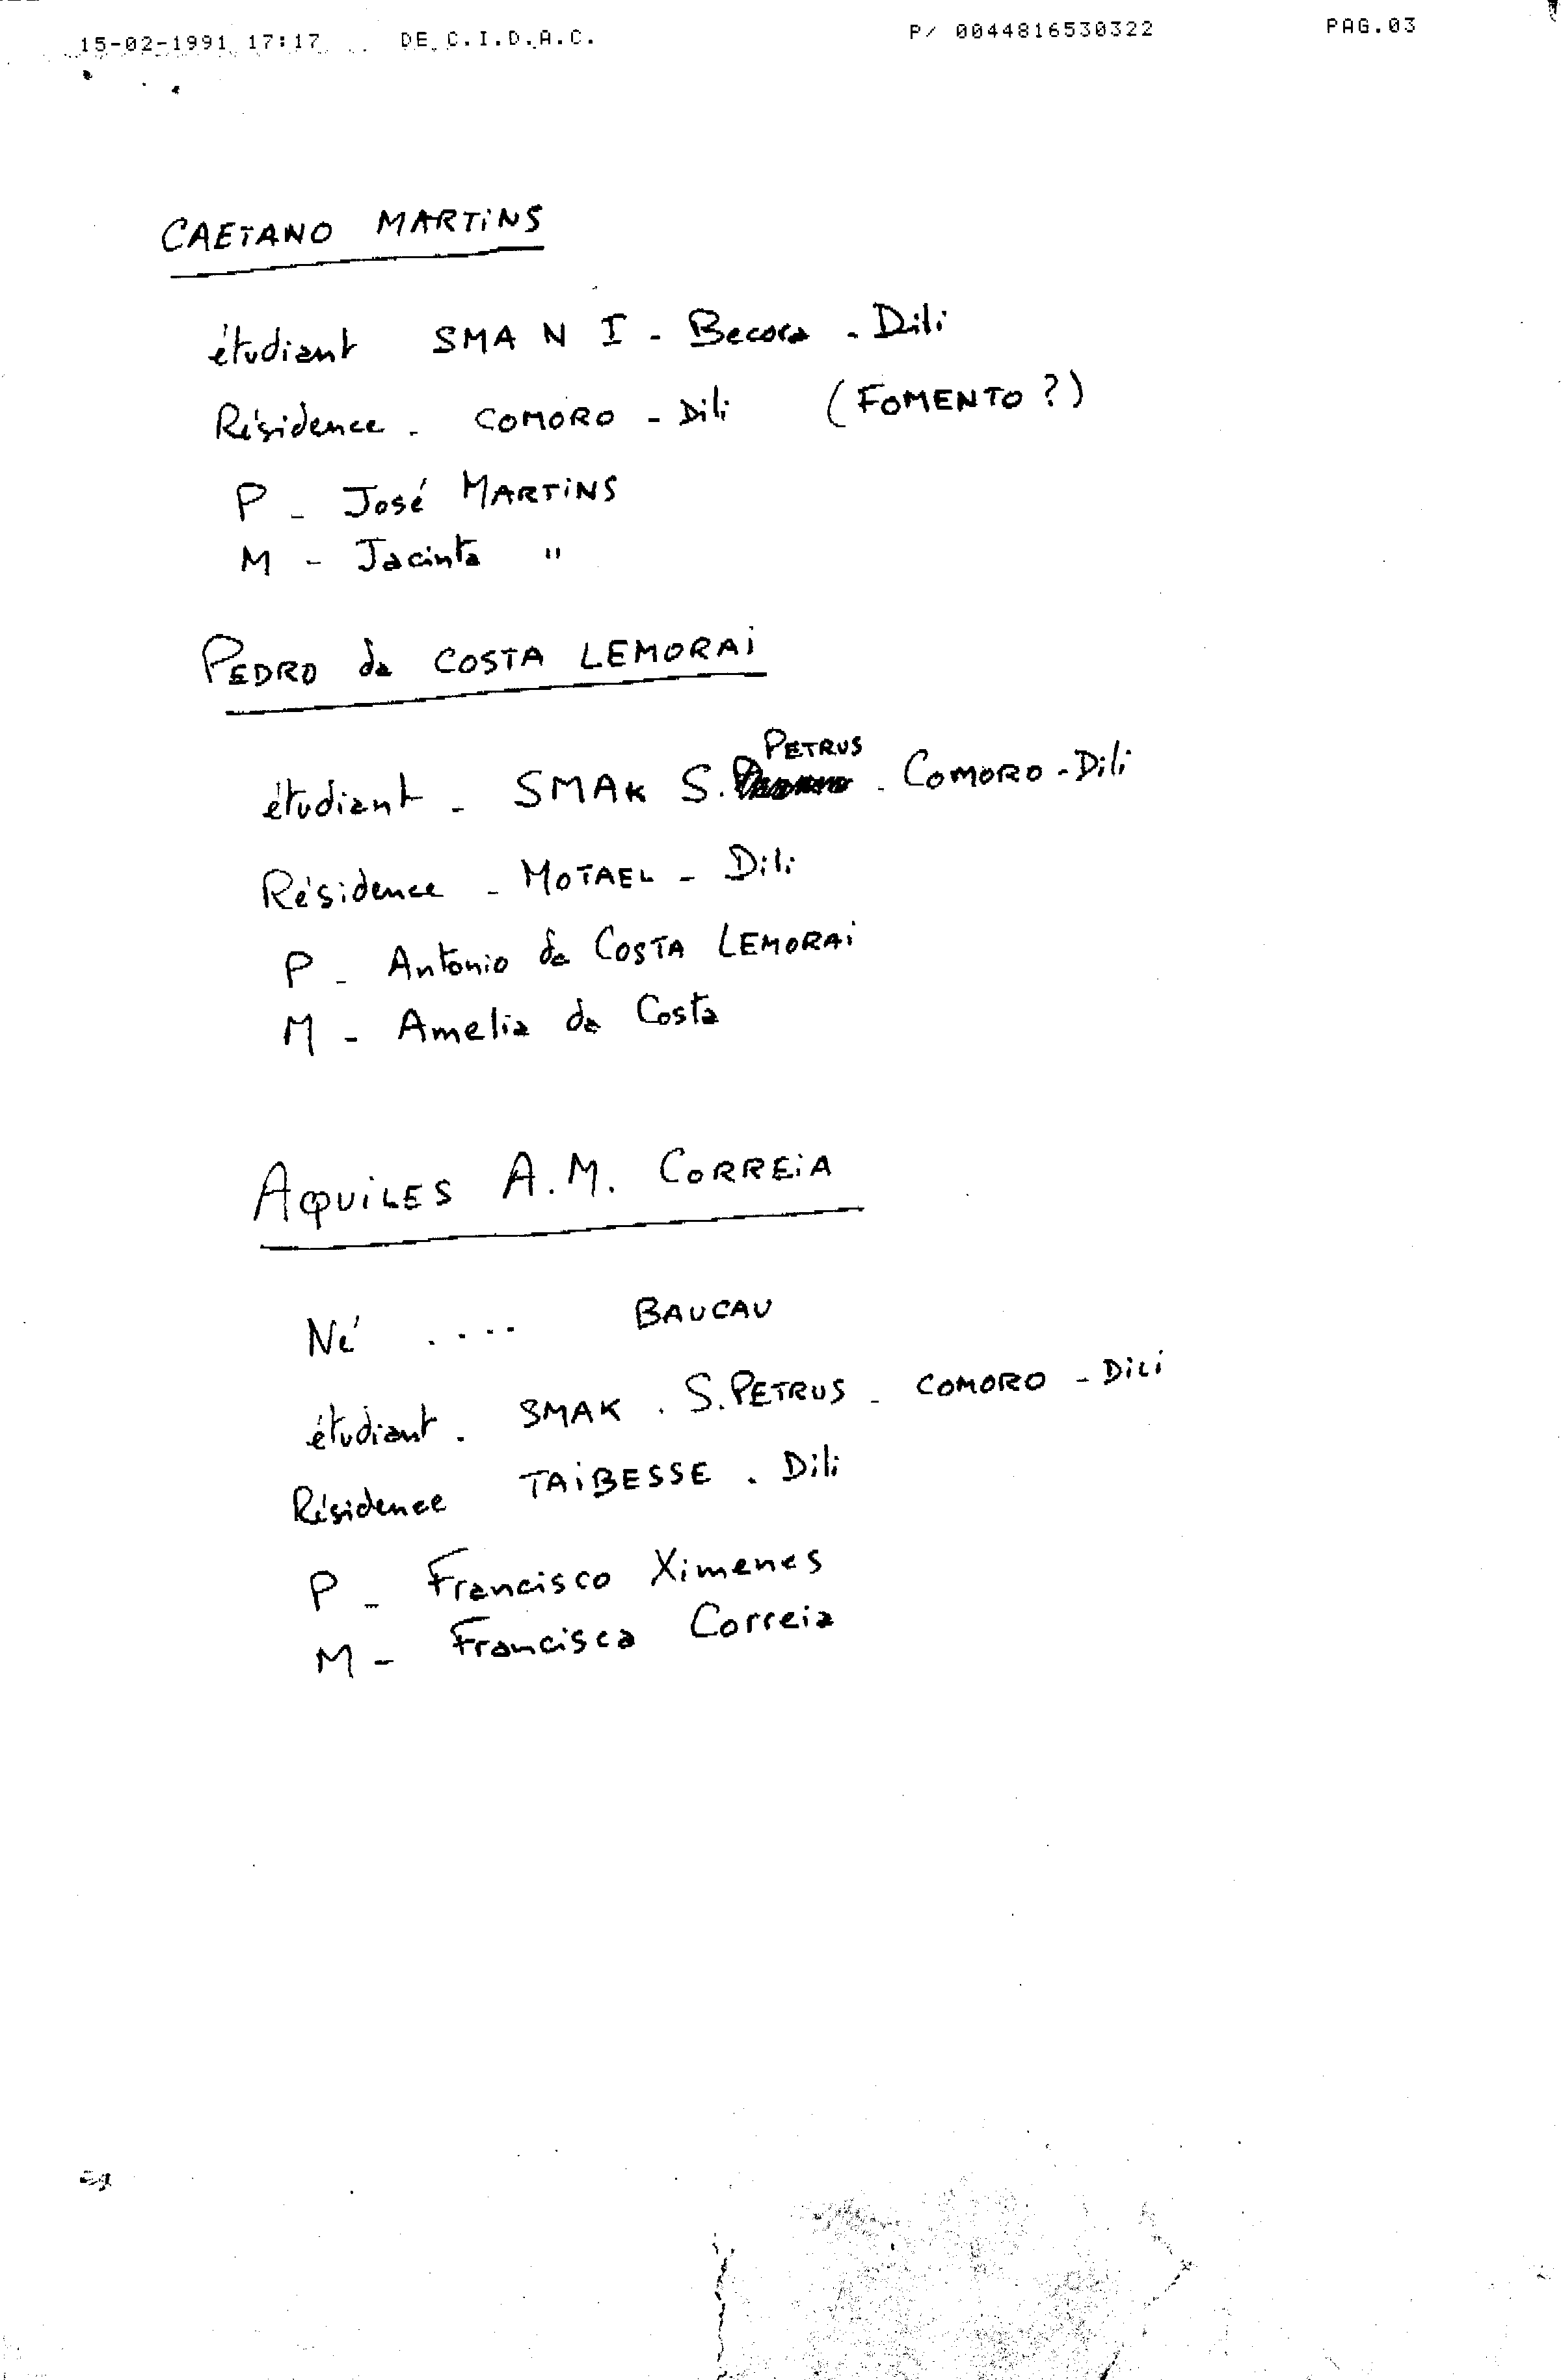 15-02-1991 17:17 DE C.I.D.A.C. P/ 0044816530322 PAG.03
CAETANO MARTINS
étudiant SMA N I - Becora - Dili
Résidence - COMORO - Dili (FOMENTO ?)
P - José MARTINS
M - Jacinta "
PEDRO da COSTA LEMORAI
PETRUS
étudiant - SMAK S. - COMORO - Dili
Résidence - MOTAEL - Dili
P - Antonio da COSTA LEMORAI
M - Amelia da Costa
AQUILES A.M. CORREIA
Né .... BAUCAU
étudiant. SMAK . S. PETRUS - COMORO - DILI
Résidence TAIBESSE . Dili
P - Francisco Ximenes
M - Francisca Correia